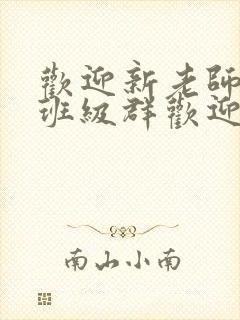 歡迎新老師
班級群歡迎
南山小南